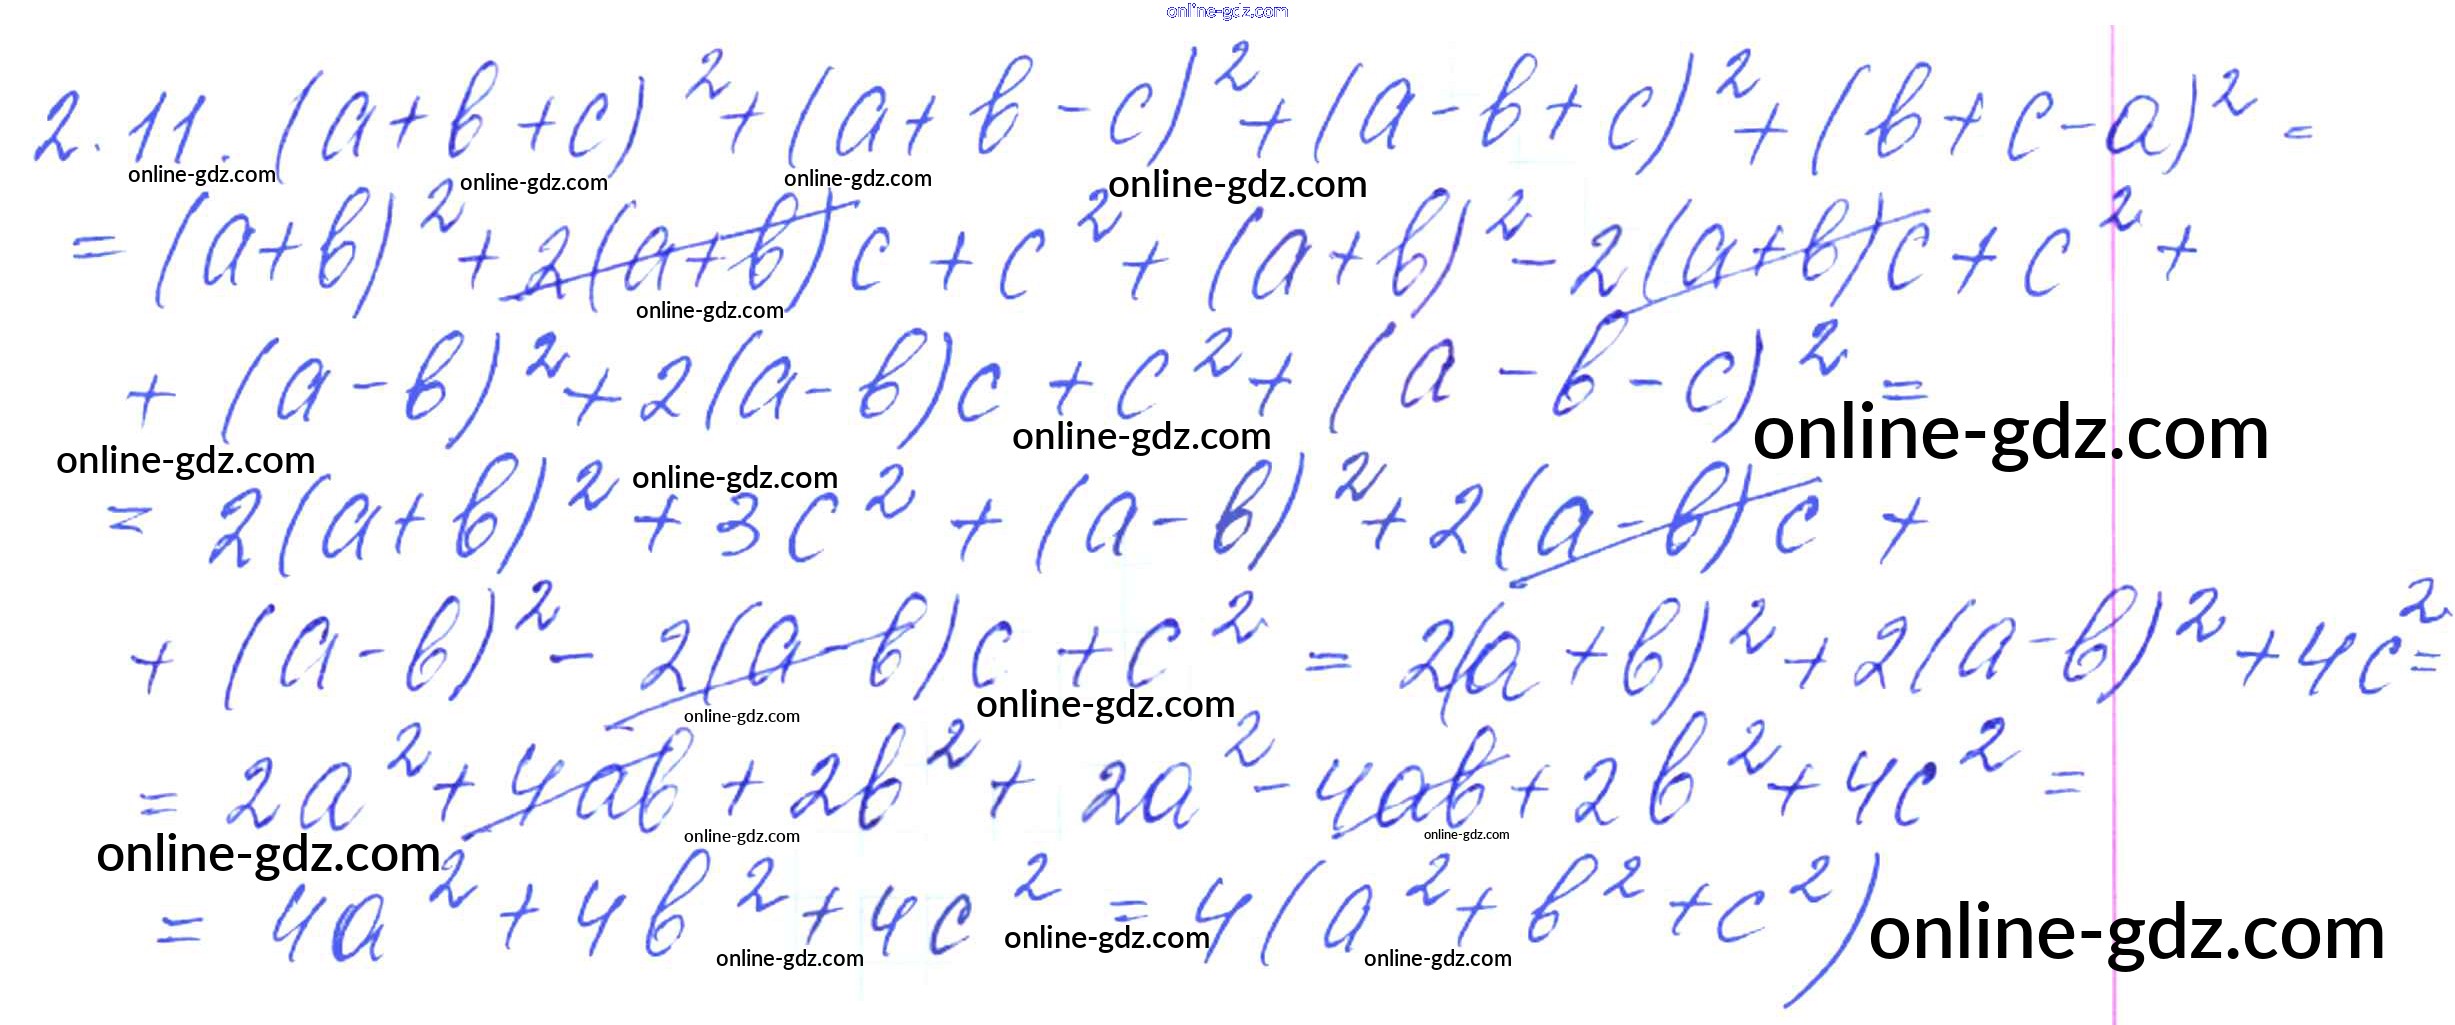 online-gdz.com
2.11. (a+b+c)²+(a+b-c)²+(a-b+c)²+(b+c-a)² =
online-gdz.com online-gdz.com online-gdz.com online-gdz.com
= (a+b)²+2(a+b)c+c²+(a+b)²-2(a+b)c+c²+
online-gdz.com
+ (a-b)²+2(a-b)c+c²+(a-b-c)² =
online-gdz.com online-gdz.com online-gdz.com online-gdz.com
= 2(a+b)²+3c²+(a-b)²+2(a-b)c+
+ (a-b)²-2(a-b)c+c² = 2(a+b)²+2(a-b)²+4c² =
online-gdz.com online-gdz.com
= 2a²+4ab+2b²+2a²-4ab+2b²+4c² =
online-gdz.com online-gdz.com online-gdz.com
= 4a²+4b²+4c² = 4(a²+b²+c²)
online-gdz.com online-gdz.com online-gdz.com online-gdz.com